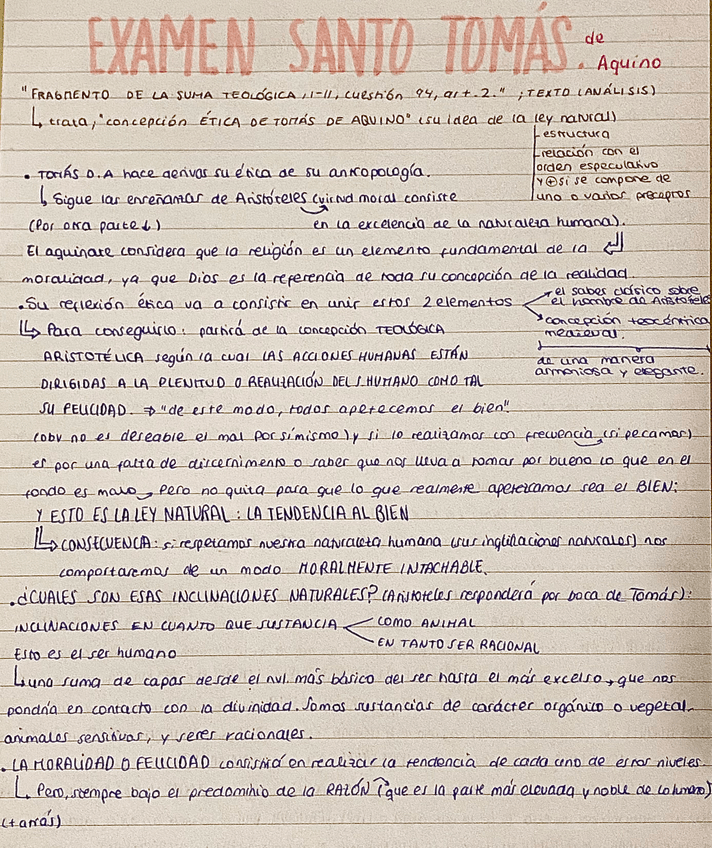 EXAMEN SANTO TOMÁS. de Aquino
"FRAGMENTO DE LA SUMA TEOLÓGICA, I-II, cuestión 94, art. 2." ; TEXTO (ANÁLISIS)
↳ trata, "concepción ÉTICA DE TOMÁS DE AQUINO" (su idea de la ley natural)
estructura
relación con el
orden especulativo
y ⊕ si se compone de
uno o varios preceptos
• TOMÁS D.A hace derivar su ética de su antropología.
↳ Sigue las enseñanzas de Aristóteles (virtud moral consiste
en la excelencia de la naturaleza humana).
(Por otra parte ↓)
El aquinate considera que la religión es un elemento fundamental de la
moralidad, ya que Dios es la referencia de toda su concepción de la realidad.
• Su reflexión ética va a consistir en unir estos 2 elementos
el saber clásico sobre
el hombre de Aristóteles
concepción teocéntrica
medieval.
de una manera
armoniosa y elegante.
↳ Para conseguirlo: partirá de la concepción TEOLÓGICA
ARISTOTÉLICA según la cual LAS ACCIONES HUMANAS ESTÁN
DIRIGIDAS A LA PLENITUD O REALIZACIÓN DEL S.HUMANO COMO TAL
SU FELICIDAD. ⇒ "de este modo, todos apetecemos el bien".
(obv no es deseable el mal por sí mismo) y si lo realizamos con frecuencia (si pecamos)
es por una falta de discernimento o saber que nos lleva a tomar por bueno lo que en el
fondo es malo → Pero no quita para que lo que realmente apetezcamos sea el BIEN:
Y ESTO ES LA LEY NATURAL: LA TENDENCIA AL BIEN
↳ CONSECUENCIA: si respetamos nuestra naturaleza humana (sus inclinaciones naturales) nos
comportaremos de un modo MORALMENTE INTACHABLE.
• ¿CUALES SON ESAS INCLINACIONES NATURALES? (Aristóteles responderá por boca de Tomás):
INCLINACIONES EN CUANTO QUE SUSTANCIA
COMO ANIMAL
EN TANTO SER RACIONAL
Esto es el ser humano
↳ una suma de capas desde el nvl. más básico del ser hasta el más excelso → que nos
pondría en contacto con la divinidad. Somos sustancias de carácter orgánico o vegetal.
animales sensitivos, y seres racionales.
• LA MORALIDAD O FELICIDAD consistirá en realizar la tendencia de cada uno de estos niveles.
↳ Pero, siempre bajo el predominio de la RAZÓN (que es la parte más elevada y noble de lo humano)
(+ atrás)